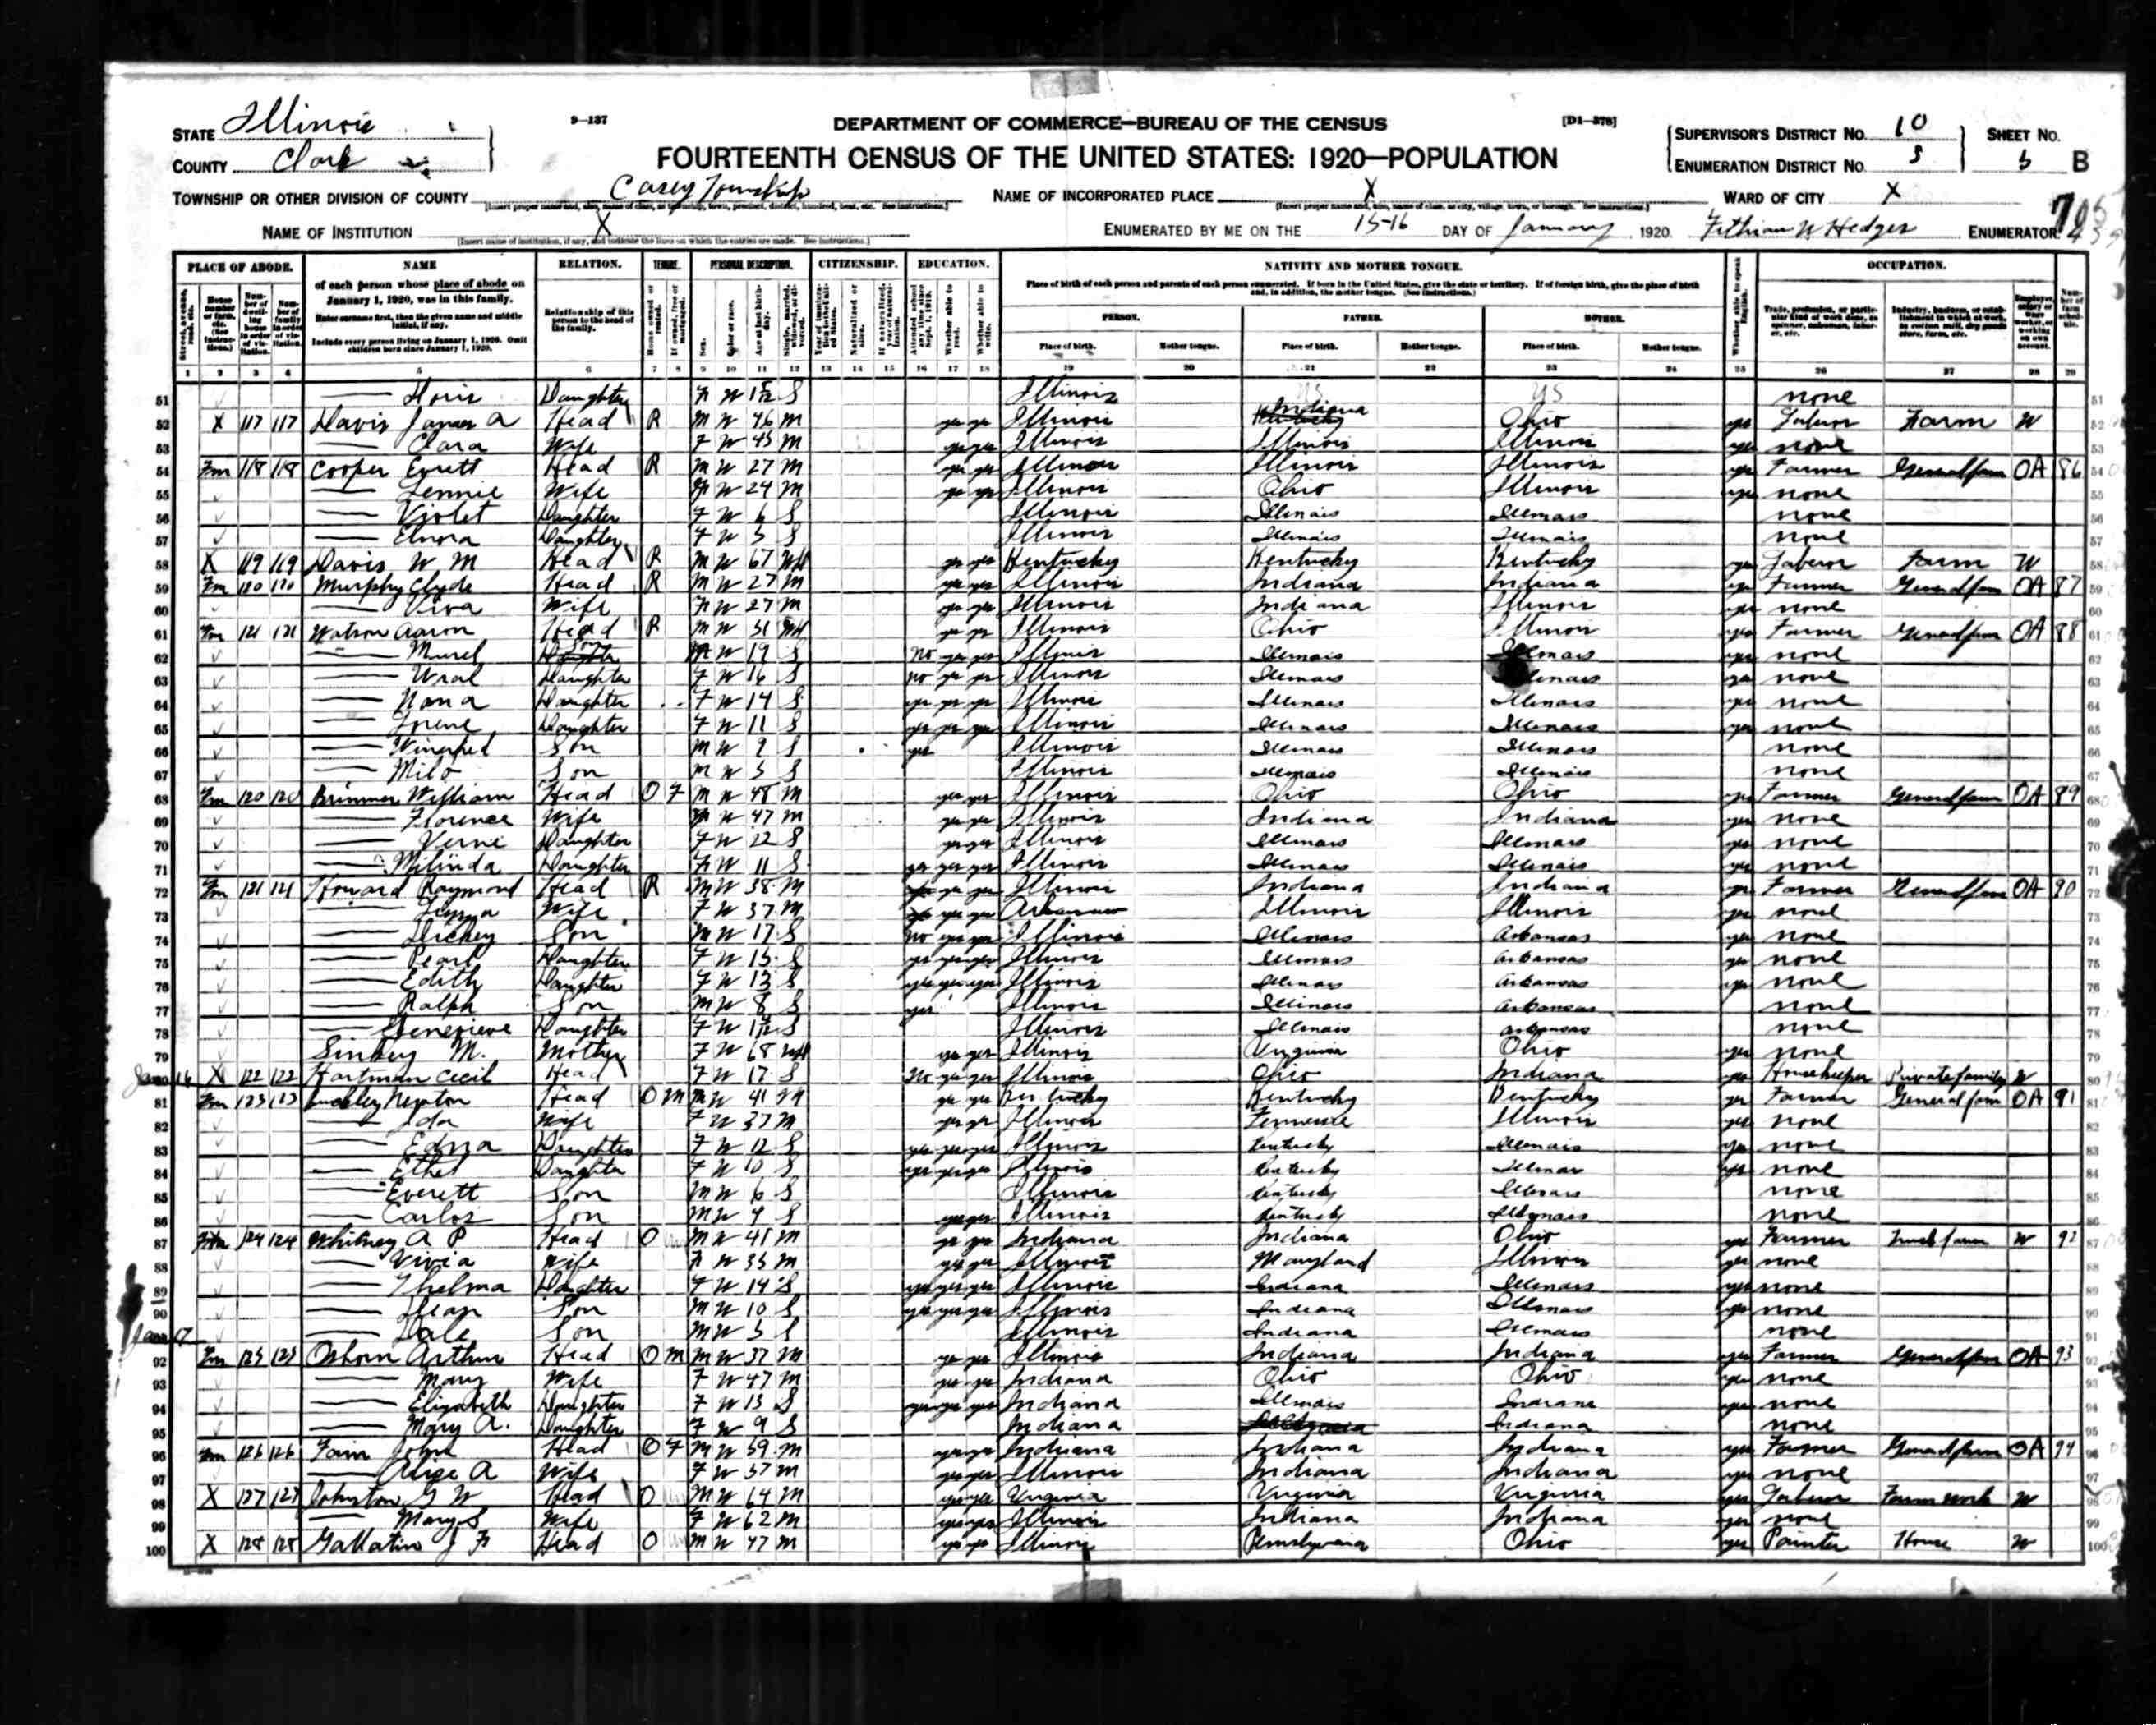 STATE Illinois
9-137
DEPARTMENT OF COMMERCE—BUREAU OF THE CENSUS
[D1-378]
SUPERVISOR'S DISTRICT No. 10
SHEET No.
COUNTY Clark
FOURTEENTH CENSUS OF THE UNITED STATES: 1920—POPULATION
ENUMERATION DISTRICT No. 5
5 B
TOWNSHIP OR OTHER DIVISION OF COUNTY Casey Township
NAME OF INCORPORATED PLACE X
WARD OF CITY X
NAME OF INSTITUTION X
ENUMERATED BY ME ON THE 15-16 DAY OF January, 1920. Fithian W Hedges ENUMERATOR.
PLACE OF ABODE. NAME RELATION. TENURE. PERSONAL DESCRIPTION. CITIZENSHIP. EDUCATION. NATIVITY AND MOTHER TONGUE. OCCUPATION.
of each person whose place of abode on January 1, 1920, was in this family.
Enter surname first, then the given name and middle initial, if any.
Include every person living on January 1, 1920. Omit children born since January 1, 1920.
Relationship of this person to the head of the family.
Place of birth of each person and parents of each person enumerated. If born in the United States, give the state or territory. If of foreign birth, give the place of birth and, in addition, the mother tongue. (See Instructions.)
PERSON. FATHER. MOTHER.
Place of birth. Mother tongue. Place of birth. Mother tongue. Place of birth. Mother tongue.
1 2 3 4 5 6 7 8 9 10 11 12 13 14 15 16 17 18 19 20 21 22 23 24 25 26 27 28 29
51 Daughter F W S Illinois none
52 X 117 117 Davis James A Head R M W 46 M yes yes Illinois Indiana Ohio yes Laborer Farm W
53 Clara Wife F W 45 M yes yes Illinois Illinois Illinois yes none
54 Fm 118 118 Cooper Evrett Head R M W 27 M yes yes Illinois Illinois Illinois yes Farmer General farm OA 86
55 Lennie Wife F W 24 M yes yes Illinois Ohio Illinois yes none
56 Violet Daughter F W 6 S Illinois Illinois Illinois none
57 Elnora Daughter F W S Illinois Illinois Illinois none
58 X 119 119 Davis W M Head R M W 67 Wd yes yes Kentucky Kentucky Kentucky yes Laborer Farm W
59 Fm 120 120 Murphy Clyde Head R M W 27 M yes yes Illinois Indiana Indiana yes Farmer General farm OA 87
60 Viva Wife F W 27 M yes yes Illinois Indiana Illinois yes none
61 Fm 121 121 Watson Aaron Head R M W 51 Wd yes yes Illinois Ohio Illinois yes Farmer General farm OA 88
62 Murel Son M W 19 S No yes yes Illinois Illinois Illinois yes none
63 Daughter F W 16 S no yes yes Illinois Illinois Illinois yes none
64 Nona Daughter F W 14 S yes yes yes Illinois Illinois Illinois yes none
65 Irene Daughter F W 11 S yes yes yes Illinois Illinois Illinois yes none
66 Son M W 9 S yes Illinois Illinois Illinois none
67 Milo Son M W 5 S Illinois Illinois Illinois none
68 Fm 120 120 Brimmer William Head O F M W 48 M yes yes Illinois Ohio Ohio yes Farmer General farm OA 89
69 Florence Wife F W 47 M yes yes Illinois Indiana Indiana yes none
70 Verni Daughter F W 22 S yes yes Illinois Illinois Illinois yes none
71 Milinda Daughter F W 11 S yes yes yes Illinois Illinois Illinois yes none
72 Fm 121 121 Howard Raymond Head R M W 38 M yes yes Illinois Indiana Indiana yes Farmer General farm OA 90
73 Wife F W 37 M yes yes Arkansas Illinois Illinois yes none
74 Dickey Son M W 17 S No yes yes Illinois Illinois Arkansas yes none
75 Pearl Daughter F W 15 S yes yes yes Illinois Illinois Arkansas yes none
76 Edith Daughter F W 13 S yes yes yes Illinois Illinois Arkansas yes none
77 Ralph Son M W 8 S yes Illinois Illinois Arkansas none
78 Genevieve Daughter F W S Illinois Illinois Arkansas none
79 M. Mother F W 68 Wd yes yes Illinois Virginia Ohio yes none
80 Jan 16 X 122 122 Hartman Cecil Head F W 17 S No yes yes Illinois Ohio Indiana yes Housekeeper Private family W
81 Fm 123 123 Newton Head O M M W 41 M yes yes Kentucky Kentucky Kentucky yes Farmer General farm OA 91
82 Ida Wife F W 37 M yes yes Illinois Tennessee Illinois yes none
83 Edna Daughter F W 12 S yes yes yes Illinois Kentucky Illinois yes none
84 Ethel Daughter F W 10 S yes yes yes Illinois Kentucky Illinois yes none
85 Everett Son M W 6 S Illinois Kentucky Illinois none
86 Carlos Son M W 4 S yes yes Illinois Kentucky Illinois none
87 Fm 124 124 Whitney A P Head O M W 41 M yes yes Indiana Indiana Ohio yes Farmer Truck farm W 92
88 Vivia Wife F W 35 M yes yes Illinois Maryland Illinois yes none
89 Thelma Daughter F W 14 S yes yes yes Illinois Indiana Illinois yes none
90 Son M W 10 S yes yes yes Illinois Indiana Illinois yes none
91 Jan 17 Dale Son M W 5 S Illinois Indiana Illinois none
92 Fm 125 125 Osborn Arthur Head O M M W 37 M yes yes Illinois Indiana Indiana yes Farmer General farm OA 93
93 Mary Wife F W 47 M yes yes Indiana Ohio Ohio yes none
94 Elizabeth Daughter F W 13 S yes yes yes Indiana Illinois Indiana yes none
95 Mary A. Daughter F W 9 S Indiana Indiana none
96 Fm 126 126 Fain John Head O F M W 59 M yes yes Indiana Indiana Indiana yes Farmer General farm OA 94
97 Alice A Wife F W 57 M yes yes Illinois Indiana Indiana yes none
98 X 127 127 Johnston G W Head O M W 64 M yes yes Virginia Virginia Virginia yes Laborer Farm work W
99 Mary S Wife F W 62 M yes yes Illinois Indiana Indiana yes none
100 X 128 128 Gallatin J F Head O M W 47 M yes yes Illinois Pennsylvania Ohio yes Painter House W